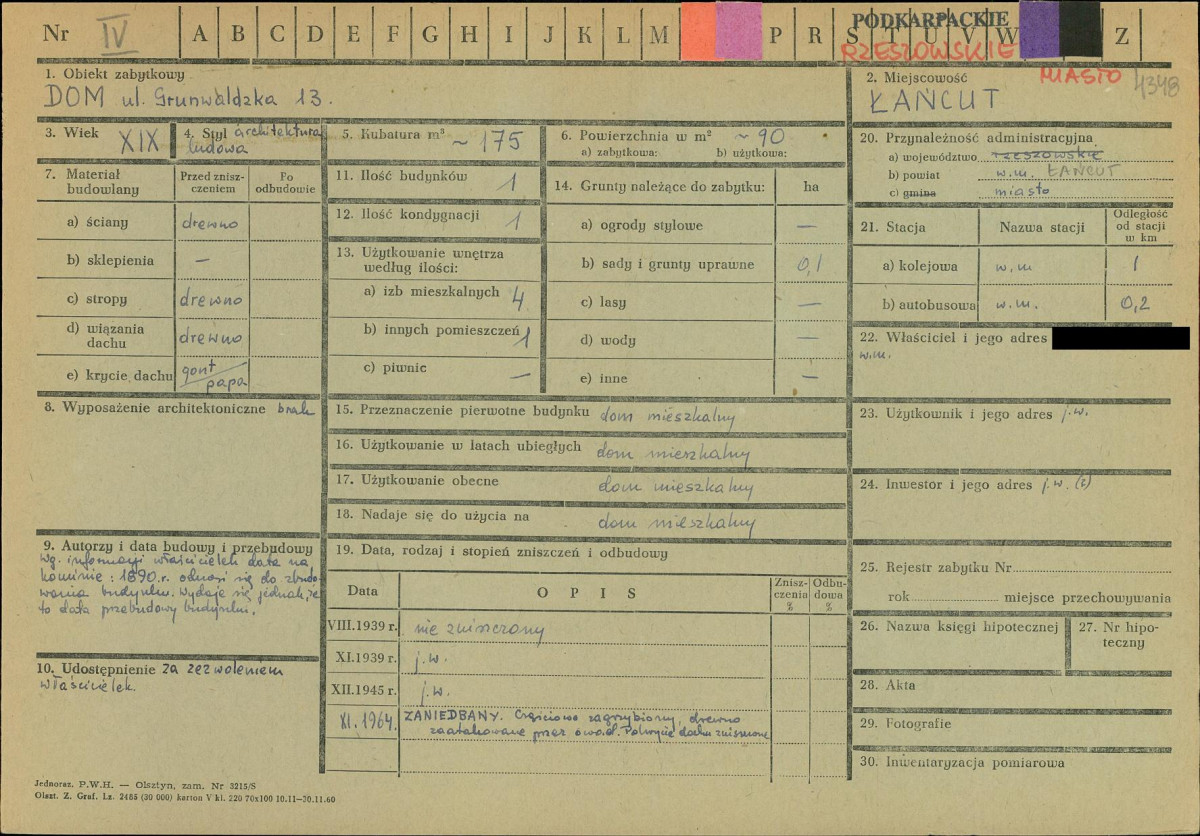 Nr IV A B C D E F G H I J K L M P R S T U V W Z
PODKARPACKIE
RZESZOWSKIE
MIASTO 4348
1. Obiekt zabytkowy
DOM ul. Grunwaldzka 13.
2. Miejscowość
ŁAŃCUT
3. Wiek XIX
4. Styl architektura
ludowa
5. Kubatura m³ ~ 175
6. Powierzchnia w m² ~ 90
a) zabytkowa: b) użytkowa:
7. Materiał
budowlany
Przed znisz-
czeniem
Po
odbudowie
a) ściany drewno
b) sklepienia —
c) stropy drewno
d) wiązania
dachu drewno
e) krycie dachu gont/
papa
8. Wyposażenie architektoniczne brak
9. Autorzy i data budowy i przebudowy
Wg. informacji właścicielek data na
kominie: 1890.r. odnosi się do zbudo-
wania budynku. Wydaje się jednak, że
to data przebudowy budynku.
10. Udostępnienie za zezwoleniem
właścicielek.
11. Ilość budynków 1
12. Ilość kondygnacji 1
13. Użytkowanie wnętrza
według ilości:
a) izb mieszkalnych 4
b) innych pomieszczeń 1
c) piwnic —
14. Grunty należące do zabytku: ha
a) ogrody stylowe —
b) sady i grunty uprawne 0,1
c) lasy —
d) wody —
e) inne —
15. Przeznaczenie pierwotne budynku dom mieszkalny
16. Użytkowanie w latach ubiegłych dom mieszkalny
17. Użytkowanie obecne dom mieszkalny
18. Nadaje się do użycia na dom mieszkalny
19. Data, rodzaj i stopień zniszczeń i odbudowy
Data O P I S
Znisz-
czenia
%
Odbu-
dowa
%
VIII.1939 r. nie zniszczony
XI.1939 r. j.w.
XII.1945 r. j.w.
XI.1964. ZANIEDBANY. Częściowo zagrzybiony, drewno
zaatakowane przez owady. Pokrycie dachu zniszczone
20. Przynależność administracyjna
a) województwo rzeszowskie
b) powiat w.m. ŁAŃCUT
c) gmina miasto
21. Stacja Nazwa stacji
Odległość
od stacji
w km
a) kolejowa w.m 1
b) autobusowa w.m. 0,2
22. Właściciel i jego adres
w.m.
23. Użytkownik i jego adres j.w.
24. Inwestor i jego adres j.w. (?)
25. Rejestr zabytku Nr
rok miejsce przechowywania
26. Nazwa księgi hipotecznej
27. Nr hipo-
teczny
28. Akta
29. Fotografie
30. Inwentaryzacja pomiarowa
Jednoraz. P.W.H. — Olsztyn, zam. Nr 3215/S
Olszt. Z. Graf. Lz. 2465 (30 000) karton V kl. 220 70x100 10.11—30.11.60